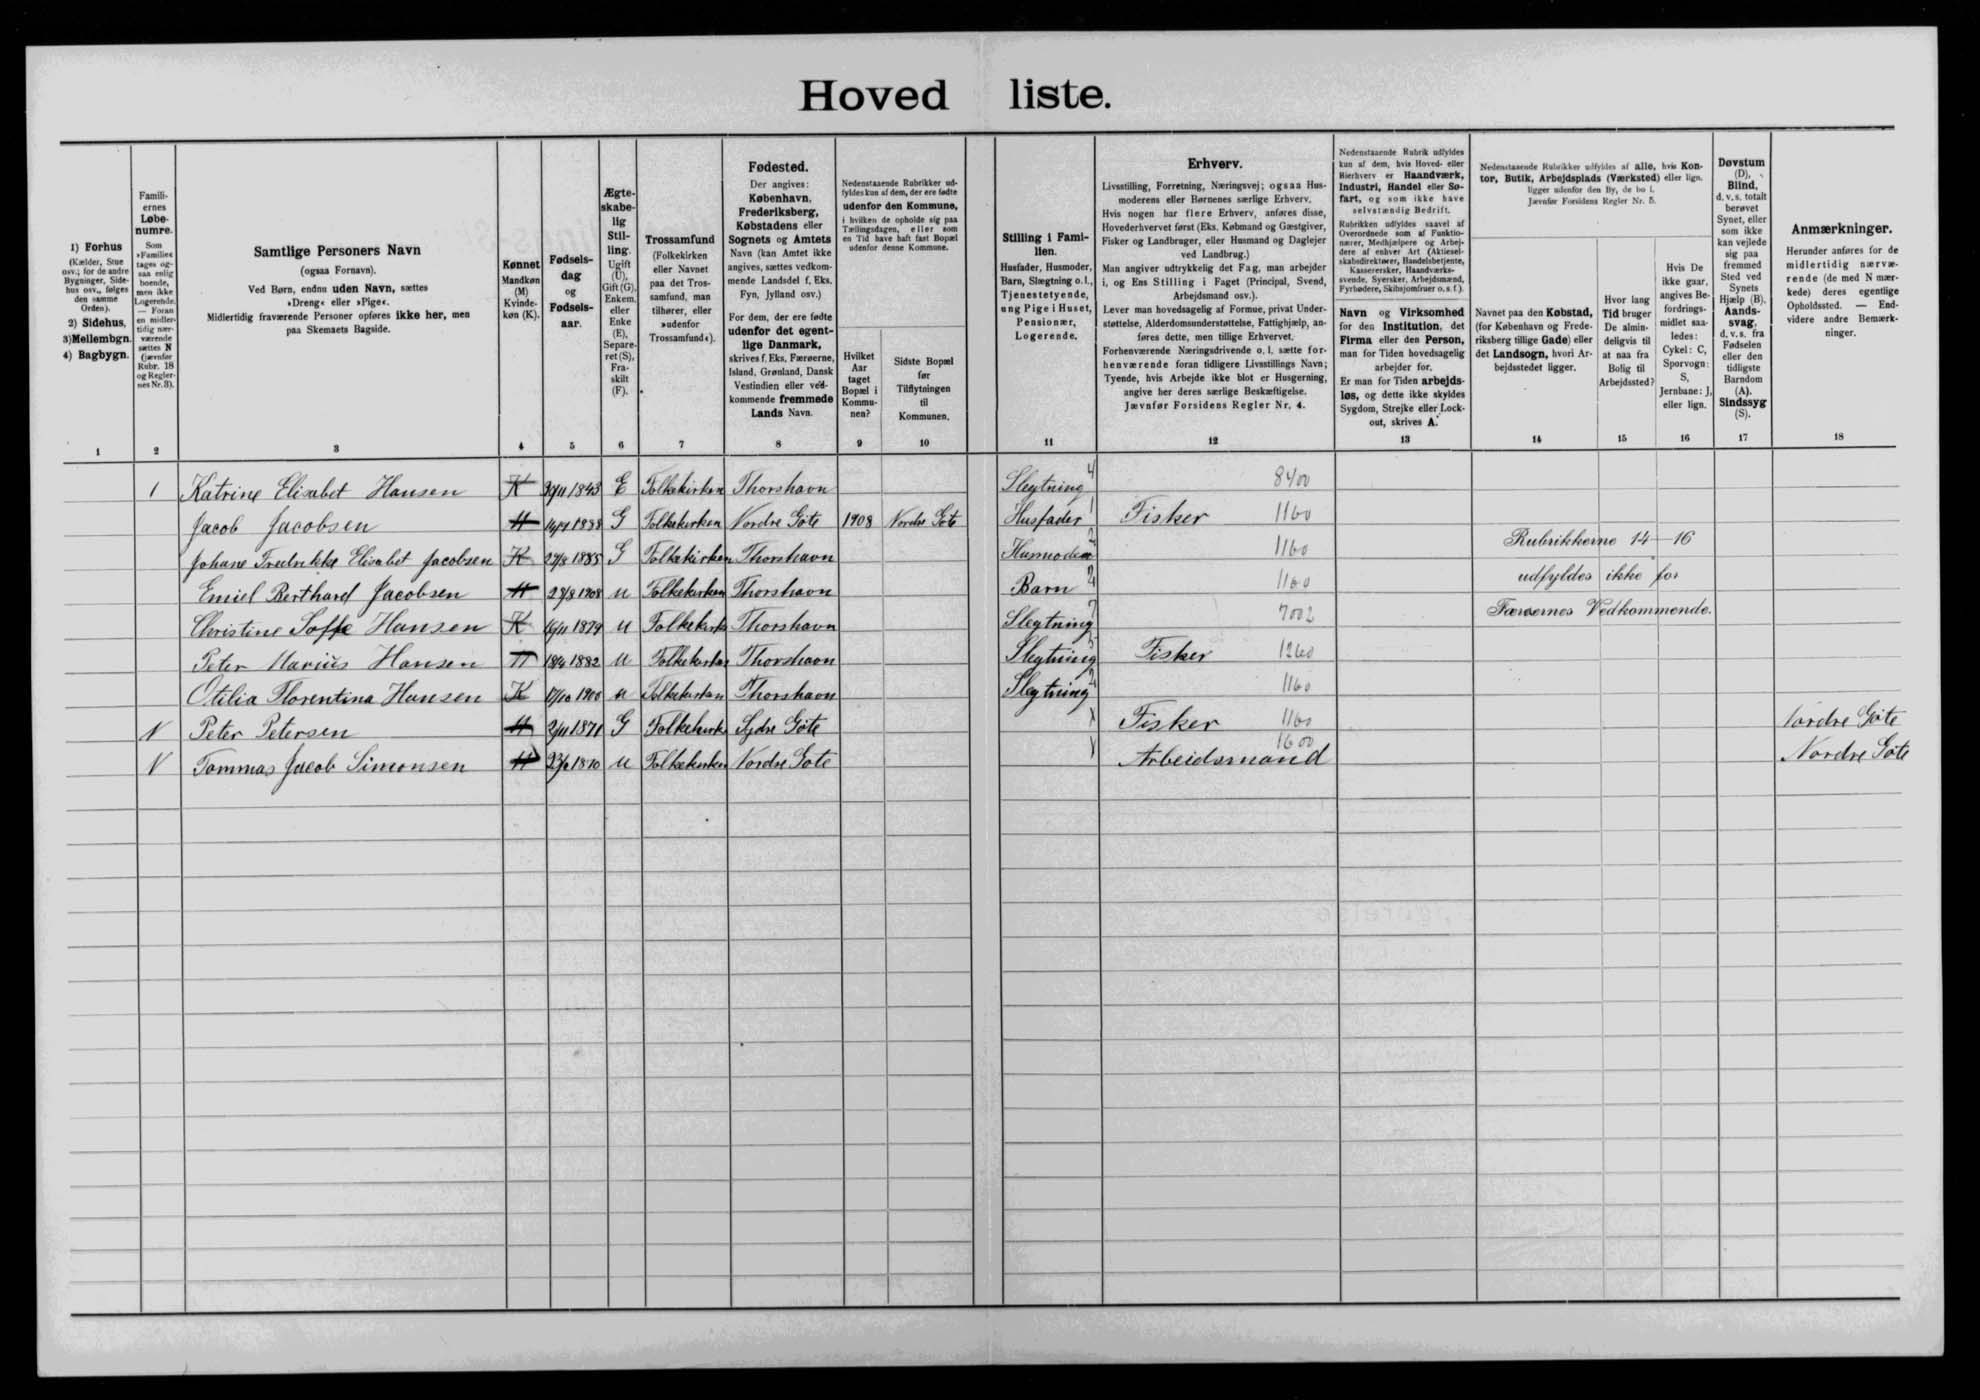 Hoved liste.
1) Forhus
(Kælder, Stue
osv.; for de andre
Bygninger, Side-
hus osv., følges
den samme
Orden).
2) Sidehus,
3) Mellembgn.
4) Bagbygn.
1
Famili-
ernes
Løbe-
numre.
Som
»Familie«
tages og-
saa enlig
boende,
men ikke
Logerende.
— Foran
en midler-
tidig nær-
værende
sættes N
(jævnfør
Rubr. 18
og Regler-
nes Nr. 3).
2
Samtlige Personers Navn
(ogsaa Fornavn).
Ved Børn, endnu uden Navn, sættes
»Dreng« eller »Pige«.
Midlertidig fraværende Personer opføres ikke her, men
paa Skemaets Bagside.
3
Kønnet
Mandkøn
(M)
Kvinde-
køn (K).
4
Fødsels-
dag
og
Fødsels-
aar.
5
Ægte-
skabe-
lig
Stil-
ling.
Ugift
(U),
Gift (G),
Enkem.
eller
Enke
(E),
Separe-
ret (S),
Fra-
skilt
(F).
6
Trossamfund
(Folkekirken
eller Navnet
paa det Tros-
samfund, man
tilhører, eller
»udenfor
Trossamfund«).
7
Fødested.
Der angives:
København,
Frederiksberg,
Købstadens eller
Sognets og Amtets
Navn (kan Amtet ikke
angives, sættes vedkom-
mende Landsdel f. Eks.
Fyn, Jylland osv.)
For dem, der ere fødte
udenfor det egent-
lige Danmark,
skrives f. Eks. Færøerne,
Island, Grønland, Dansk
Vestindien eller ved-
kommende fremmede
Lands Navn.
8
Nedenstaaende Rubrikker ud-
fyldes kun af dem, der ere fødte
udenfor den Kommune,
i hvilken de opholde sig paa
Tællingsdagen, eller som
en Tid have haft fast Bopæl
udenfor denne Kommune.
Hvilket
Aar
taget
Bopæl i
Kommu-
nen?
9
Sidste Bopæl
før
Tilflytningen
til
Kommunen.
10
Stilling i Fami-
lien.
Husfader, Husmoder,
Barn, Slægtning o. l.,
Tjenestetyende,
ung Pige i Huset,
Pensionær,
Logerende.
11
Erhverv.
Livsstilling, Forretning, Næringsvej; ogsaa Hus-
moderens eller Børnenes særlige Erhverv.
Hvis nogen har flere Erhverv, anføres disse,
Hovederhvervet først (Eks. Købmand og Gæstgiver,
Fisker og Landbruger, eller Husmand og Daglejer
ved Landbrug.)
Man angiver udtrykkelig det Fag, man arbejder
i, og Ens Stilling i Faget (Principal, Svend,
Arbejdsmand osv.).
Lever man hovedsagelig af Formue, privat Under-
støttelse, Alderdomsunderstøttelse, Fattighjælp, an-
føres dette, men tillige Erhvervet.
Forhenværende Næringsdrivende o. l. sætte for-
henværende foran tidligere Livsstillings Navn;
Tyende, hvis Arbejde ikke blot er Husgerning,
angive her deres særlige Beskæftigelse.
Jævnfør Forsidens Regler Nr. 4.
12
Nedenstaaende Rubrik udfyldes
kun af dem, hvis Hoved- eller
Bierhverv er Haandværk,
Industri, Handel eller Sø-
fart, og som ikke have
selvstændig Bedrift.
Rubrikken udfyldes saavel af
Overordnede som af Funktio-
nærer, Medhjælpere og Arbej-
dere af enhver Art (Aktiesel-
skabsdirektører, Handelsbetjente,
Kassererske, Haandværks-
svende, Syersker, Arbejdsmænd,
Fyrbødere, Skibsjomfruer o. s. f.).
Navn og Virksomhed
for den Institution, det
Firma eller den Person,
man for Tiden hovedsagelig
arbejder for.
Er man for Tiden arbejds-
løs, og dette ikke skyldes
Sygdom, Strejke eller Lock-
out, skrives A.
13
Nedenstaaende Rubrikker udfyldes af alle, hvis Kon-
tor, Butik, Arbejdsplads (Værksted) eller lign.
ligger udenfor den By, de bo i.
Jævnfør Forsidens Regler Nr. 5.
Navnet paa den Købstad,
(for København og Frede-
riksberg tillige Gade) eller
det Landsogn, hvori Ar-
bejdsstedet ligger.
14
Hvor lang
Tid bruger
De almin-
deligvis til
at naa fra
Bolig til
Arbejdssted?
15
Hvis De
ikke gaar,
angives Be-
fordrings-
midlet saa-
ledes:
Cykel: C,
Sporvogn:
S,
Jernbane: J,
eller lign.
16
Døvstum
(D),
Blind,
d. v. s. totalt
berøvet
Synet, eller
som ikke
kan vejlede
sig paa
fremmed
Sted ved
Synets
Hjælp (B).
Aands-
svag,
d. v. s. fra
Fødselen
eller den
tidligste
Barndom
(A).
Sindssyg
(S).
17
Anmærkninger.
Herunder anføres for de
midlertidig nærvæ-
rende (de med N mær-
kede) deres egentlige
Opholdssted. — End-
videre andre Bemærk-
ninger.
18
1 Katrine Elisabet Hansen K 30/11 1843 E Folkekirken Thorshavn Slegtning 4 8400
Jacob Jacobsen M 1888 G Folkekirken Nordre Göte 1908 Nordre Göte Husfader 1 Fisker 1160
Johane Fredrikke Elisabet Jacobsen K 27/8 1885 G Folkekirken Thorshavn Husmoder 2 1160 Rubrikkerne 14-16
Emiel Berthard Jacobsen M 28/8 1908 U Folkekirken Thorshavn Barn 1160 udfyldes ikke for
Christine Soffe Hansen K 16/11 1879 U Folkekirk Thorshavn Slegtning 7002 Færøernes Vedkommende.
Peter Marius Hansen M 1882 U Folkekirken Thorshavn Slegtning Fisker 1260
Otilia Florentina Hansen K 17/10 1900 U Folkekirken Thorshavn Slegtning 1160
N Peter Petersen M 2/11 1871 G Folkekirk Sydre Göte Fisker 1160 Nordre Göte
N Tommas Jacob Simonsen M U Folkekirken Nordre Gote Arbeidsmand 1600 Nordre Göte